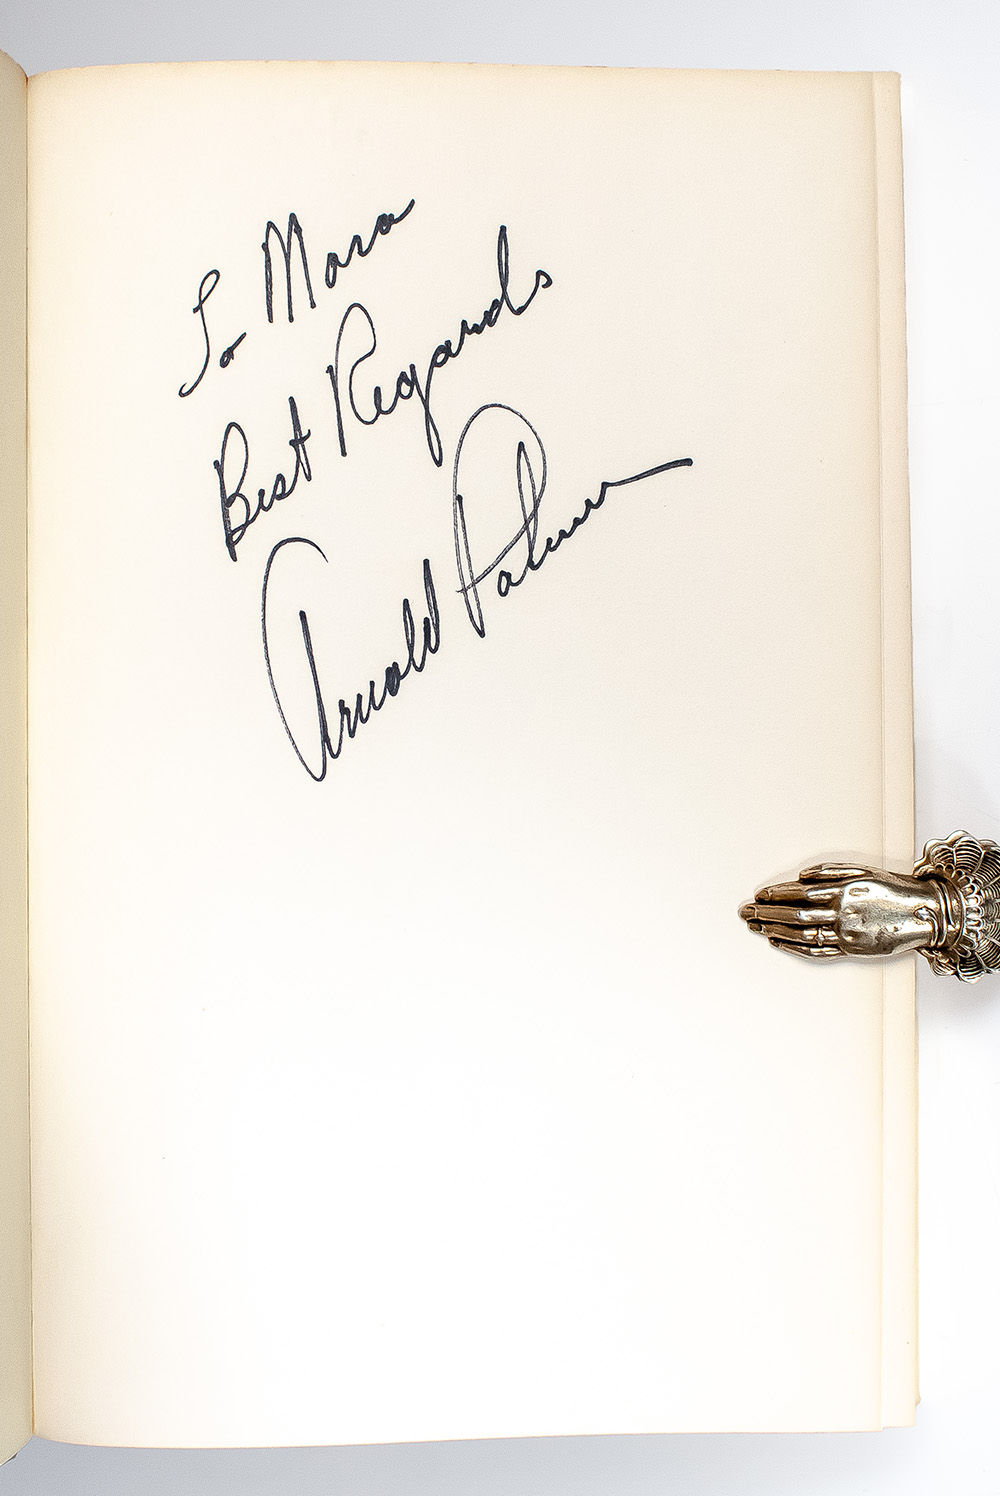 To Mara
Best Regards
Arnold Palmer